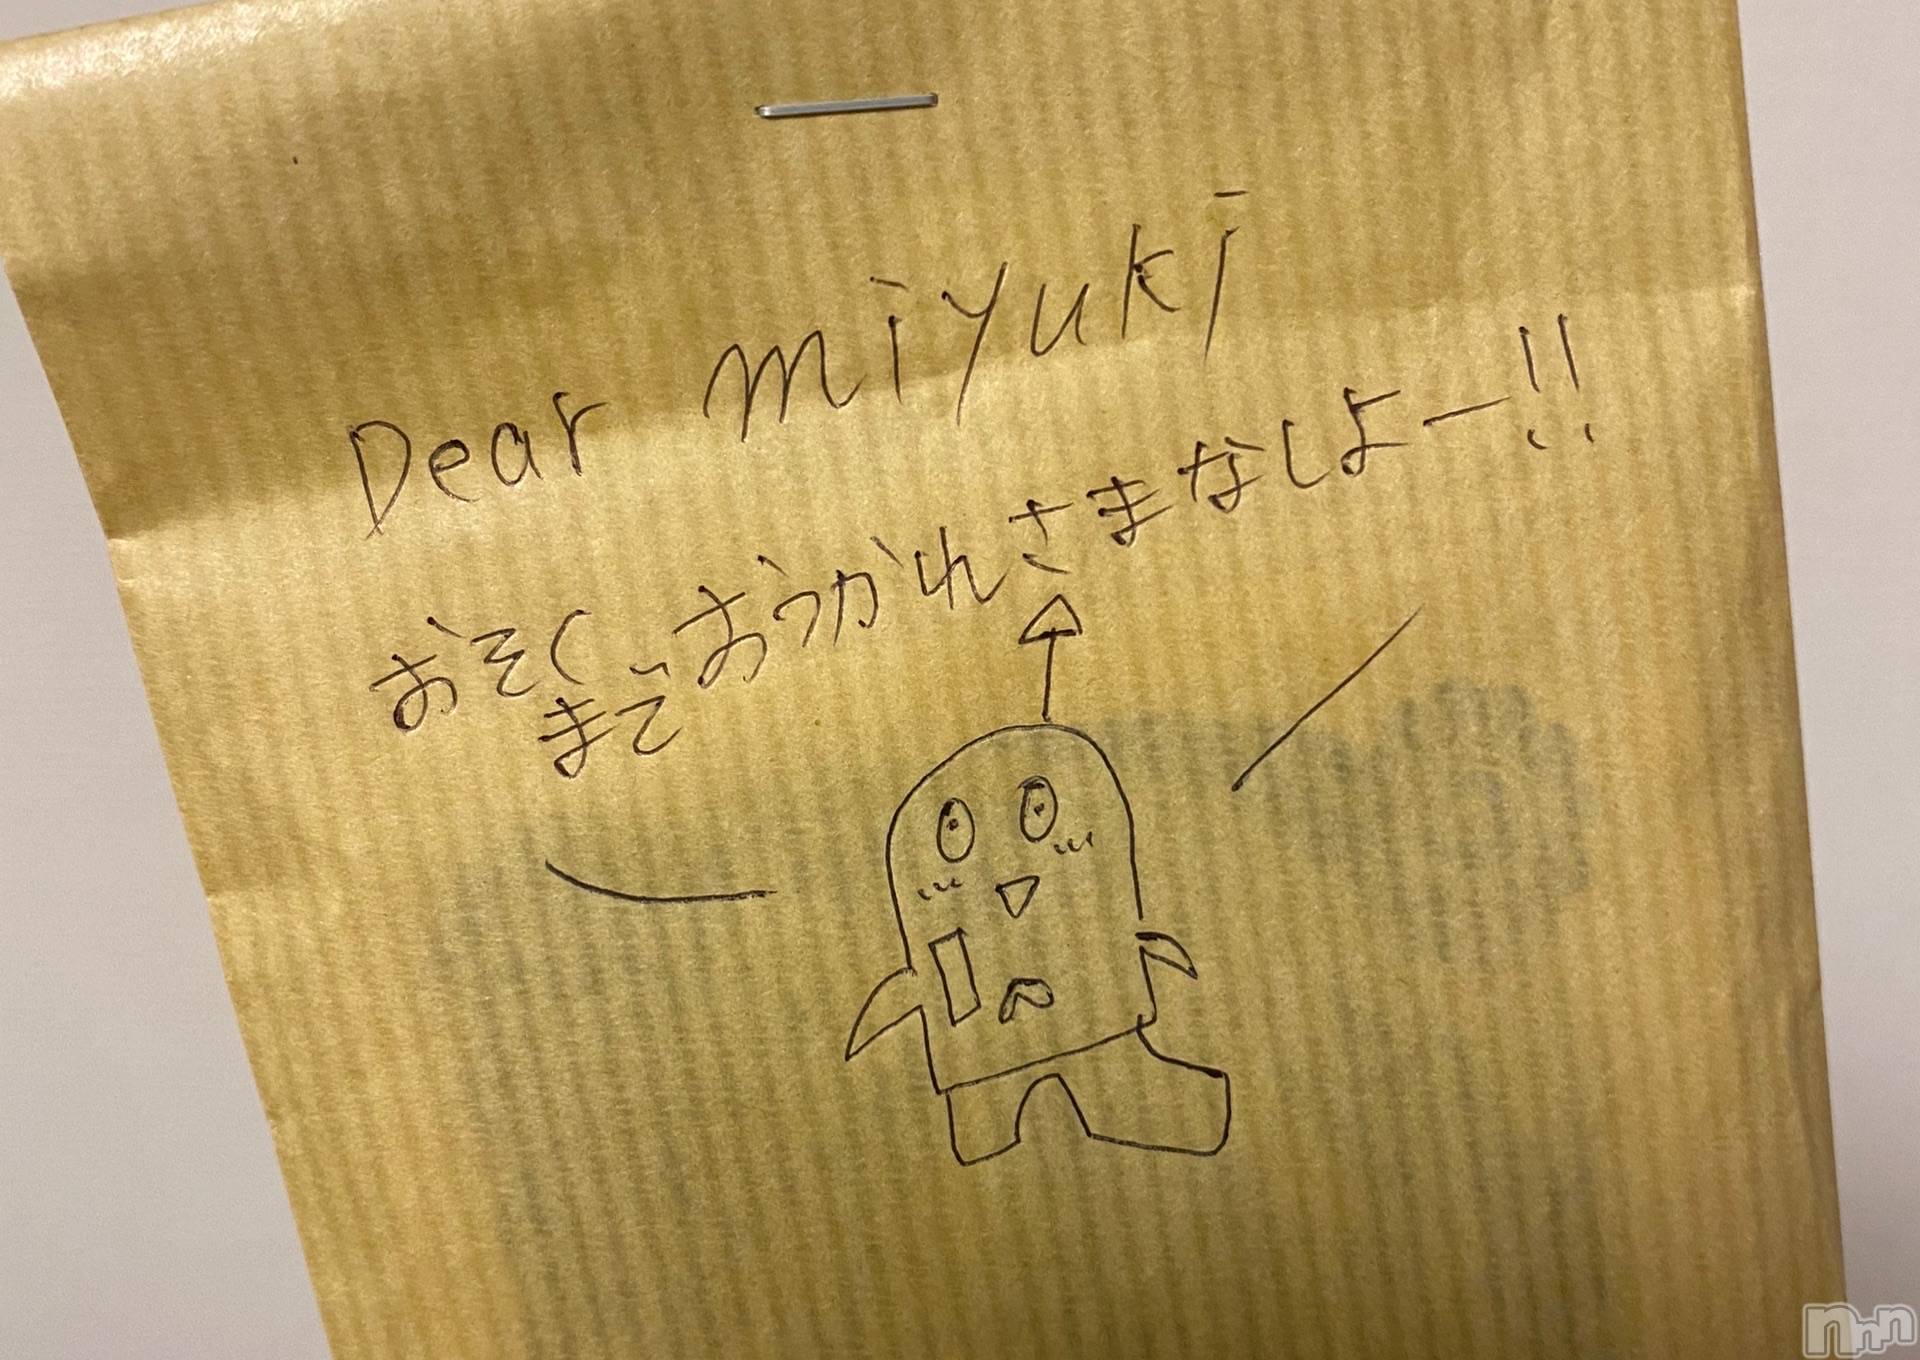 Dear miyuki
おそくまで おつかれさまなしよー!!
nnn